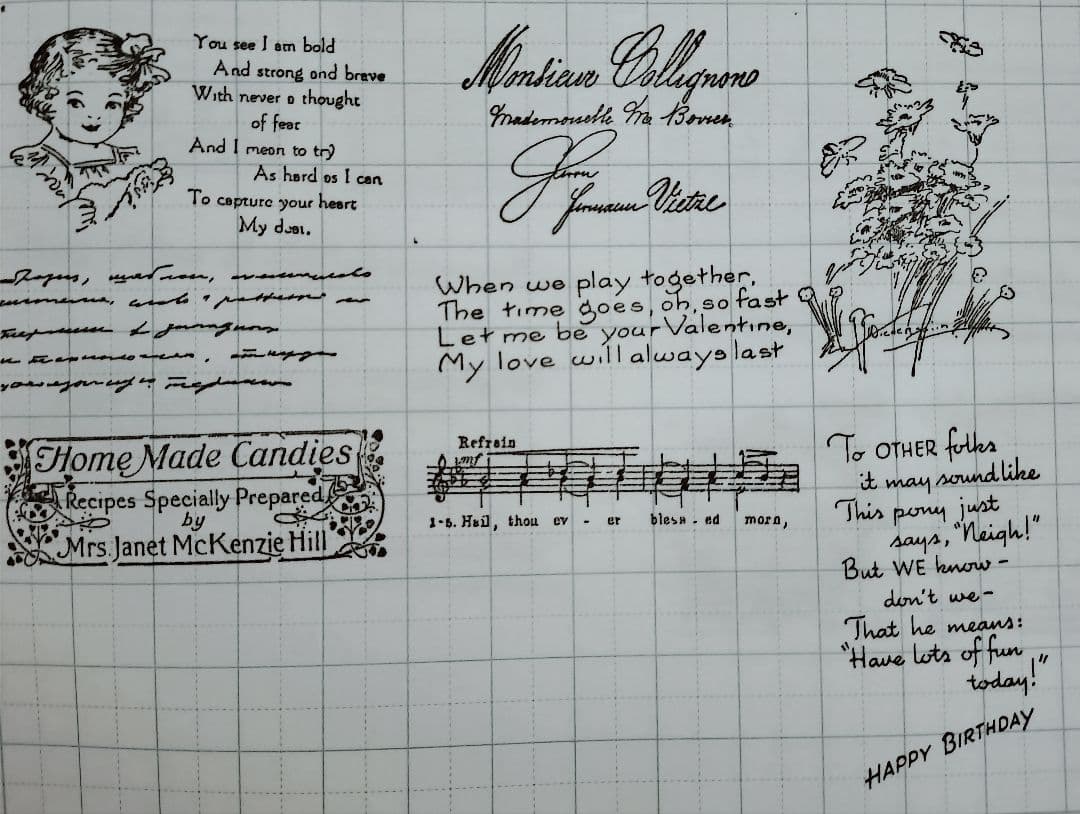 You see I am bold
And strong and brave
With never a thought
of fear
And I mean to try
As hard as I can
To capture your heart
My dear.
Monsieur Collignono
Mademoiselle
Herrn
Hermann Vietze
When we play together,
The time goes, oh, so fast
Let me be your Valentine,
My love will always last
Home Made Candies
Recipes Specially Prepared
by
Mrs. Janet McKenzie Hill
Refrain
mf
1-5. Hail, thou ev - er bless - ed morn,
To OTHER folks
it may sound like
This pony just
says, "Neigh!"
But WE know -
don't we -
That he means:
"Have lots of fun
today!"
HAPPY BIRTHDAY